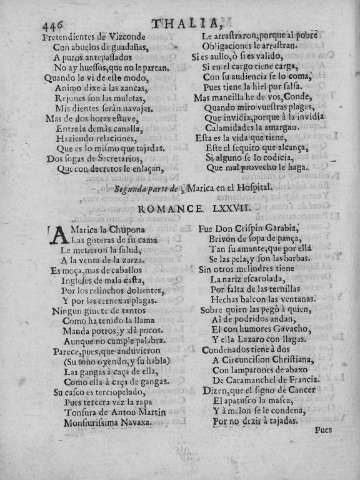 446 THALIA,
Pretendientes de Vizconde
Con abuelos de guadañas,
A puros antepassados
No ay huessos, que no le partan.
Quando le vi de este modo,
Animo dixe à las zancas,
Rejones son las muletas,
Mis dientes serán navajas.
Mas de dos horas estuve,
Entre la de más canalla,
Haziendo relaciones,
Que es lo mismo que tajadas.
Dos sogas de Secretarios,
Que con decretos le enlaçan,
Le arrastraron, porque al pobre
Obligaciones le arrastran.
Si es aullo, ò si es valido,
Si en el cargo tiene carga,
Con su audiencia se lo coma,
Pues tiene la hiel por salsa.
Mas mancilla he de vos, Conde,
Quando miro vuestras plagas,
Que invidia, porque à la invidia
Calamidades la amargan.
Esta es la vida que tiene,
Este el sequito que alcança,
Si alguno se lo codicia,
Que mal provecho le haga.
Segunda parte de Marica en el Hospital.
ROMANCE LXXVII.
A Marica la Chupona
Las goteras de su cama
Le metieron la salud,
A la venta de la zarza.
Es moça, mas de caballos
Ingleses de mala casta,
Por los relinchos dolientes,
Y por las eternas plagas.
Ningun ginete de tantos
Como ha tenido la llama
Manda potros, y dà pocos,
Aunque no cumple palabra.
Parece, pues, que anduvieron
(Su tono oyendo, y su habla)
Las gangas à caça de ella,
Como ella à caça de gangas.
Su casco es terciopelado,
Pues tercera vez la rapa
Tonsura de Anton Martin
Monsiurissima Navaxa.
Fue Don Crispin Garabia,
Bribón de sopa de pança,
Tan su amante, que por ella
Se las pela, y son las barbas.
Sin otros melindres tiene
La nariz escarolada,
Por falta de las ternillas
Hechas balcon las ventanas.
Sobre quien las pegò à quien,
Al de podridos andan,
El con humores Gavacho,
Y ella Lazaro con llagas.
Condenados tiene à dos
A Circuncision Christiana,
Con lamparones de abaxo
De Caramanchel de Francia.
Dizen, que el signo de Cancer
El apatusco la masca,
Y à melon se le condena,
Por no dezir à tajadas.
Pues